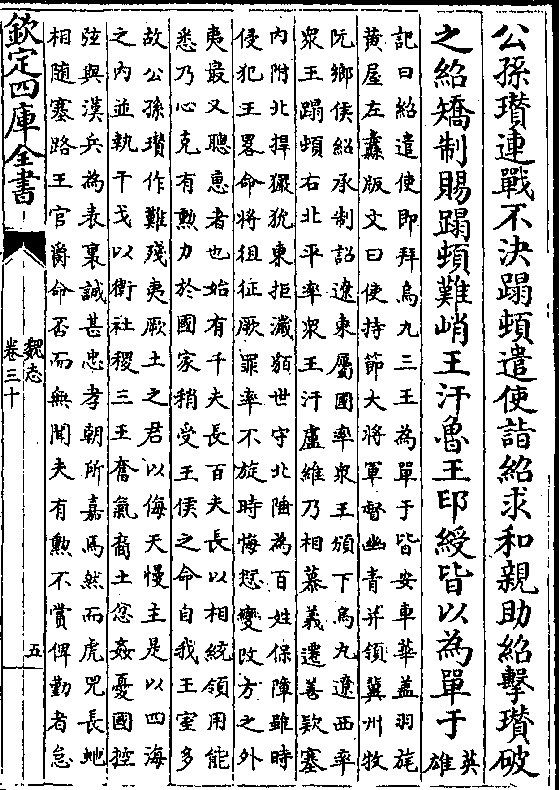 公孫瓚連戰不決蹋頓遣使詣紹求和親助紹擊瓚破
之紹矯制賜蹋頓難峭王汗魯王印綬皆以為單于英雄
記曰紹遣使即拜烏九三王為單于皆安車華蓋羽旄
黄屋左纛版文曰使持節大將軍督幽青并領冀州牧
阮鄉侯紹承制詔遼東屬國率衆王頒下烏九遼西率
衆王蹋頓右北平率衆王汗盧維乃相慕義遷善款塞
內附北捍玁狁東拒濊貊世守北陲為百姓保障雖時
侵犯王畧命將徂征厥罪率不旋時悔愆變改方之外
夷最又聰惠者也始有千夫長百夫長以相統領用能
悉乃心克有勲力於國家稍受王侯之命自我王室多
故公孫瓚作難殘夷厥土之君以侮天慢主是以四海
之內並執干戈以衛社稷三王奮氣裔土忿姦憂國控
弦與漢兵為表裏誠甚忠孝朝所嘉焉然而虎兕長虵
相隨塞路王官爵命否而無聞夫有勲不賞俾勤者怠
欽定四庫全書
魏志
卷三十
五